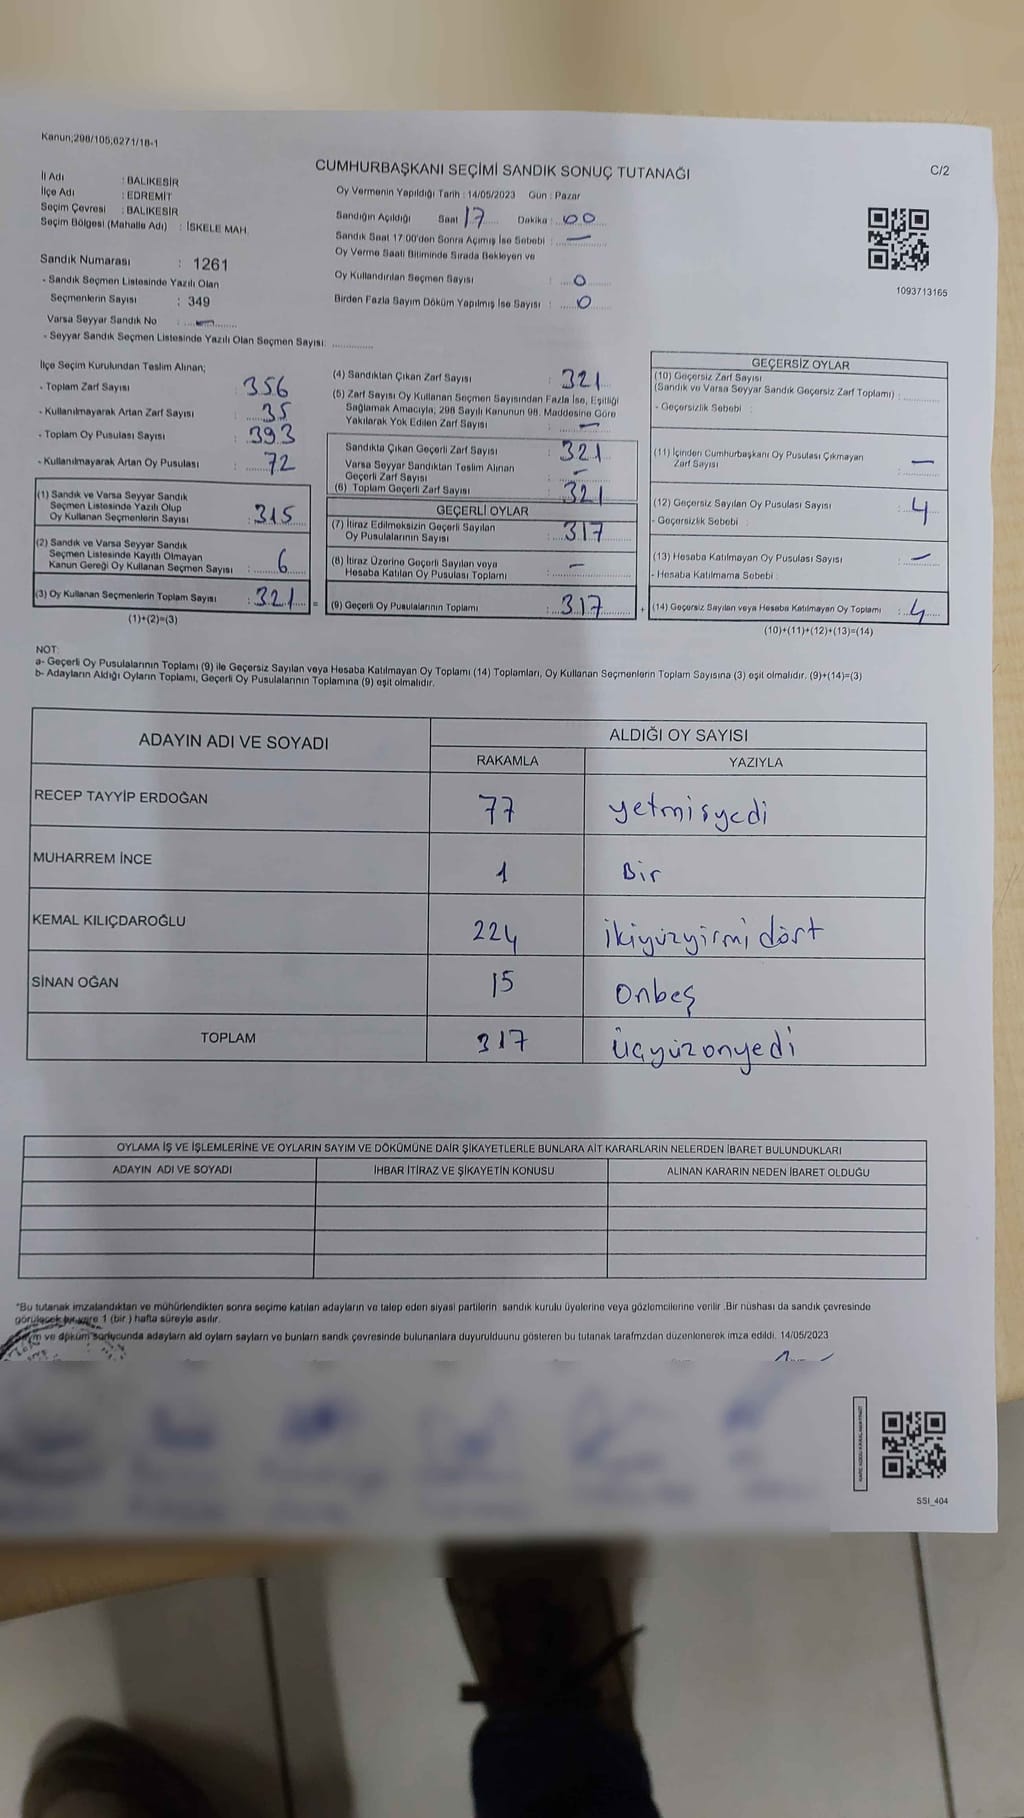 Kanun;298/105;6271/18-1
CUMHURBAŞKANI SEÇİMİ SANDIK SONUÇ TUTANAĞI
C/2
İl Adı : BALIKESİR
İlçe Adı : EDREMİT
Seçim Çevresi : BALIKESİR
Seçim Bölgesi (Mahalle Adı) : İSKELE MAH.
Oy Vermenin Yapıldığı Tarih : 14/05/2023 Gün : Pazar
Sandığın Açıldığı Saat 17 Dakika : 00
Sandık Saat 17:00'den Sonra Açımış İse Sebebi : —
Oy Verme Saati Bitiminde Sırada Bekleyen ve
Oy Kullandırılan Seçmen Sayısı : 0
Birden Fazla Sayım Döküm Yapılmış İse Sayısı : 0
1093713165
Sandık Numarası : 1261
- Sandık Seçmen Listesinde Yazılı Olan
Seçmenlerin Sayısı : 349
Varsa Seyyar Sandık No : —
- Seyyar Sandık Seçmen Listesinde Yazılı Olan Seçmen Sayısı:
İlçe Seçim Kurulundan Teslim Alınan;
- Toplam Zarf Sayısı : 356
- Kullanılmayarak Artan Zarf Sayısı : 35
- Toplam Oy Pusulası Sayısı : 393
- Kullanılmayarak Artan Oy Pusulası : 72
(1) Sandık ve Varsa Seyyar Sandık
Seçmen Listesinde Yazılı Olup
Oy Kullanan Seçmenlerin Sayısı : 315
(2) Sandık ve Varsa Seyyar Sandık
Seçmen Listesinde Kayıtlı Olmayan
Kanun Gereği Oy Kullanan Seçmen Sayısı : 6
(3) Oy Kullanan Seçmenlerin Toplam Sayısı : 321 =
(1)+(2)=(3)
(4) Sandıktan Çıkan Zarf Sayısı : 321
(5) Zarf Sayısı Oy Kullanan Seçmen Sayısından Fazla İse, Eşitliği
Sağlamak Amacıyla, 298 Sayılı Kanunun 98. Maddesine Göre
Yakılarak Yok Edilen Zarf Sayısı : —
Sandıkta Çıkan Geçerli Zarf Sayısı : 321
Varsa Seyyar Sandıktan Teslim Alınan
Geçerli Zarf Sayısı : —
(6) Toplam Geçerli Zarf Sayısı : 321
GEÇERLİ OYLAR
(7) İtiraz Edilmeksizin Geçerli Sayılan
Oy Pusulalarının Sayısı : 317
(8) İtiraz Üzerine Geçerli Sayılan veya
Hesaba Katılan Oy Pusulası Toplamı : —
(9) Geçerli Oy Pusulalarının Toplamı : 317 +
GEÇERSİZ OYLAR
(10) Geçersiz Zarf Sayısı
(Sandık ve Varsa Seyyar Sandık Geçersiz Zarf Toplamı) :
- Geçersizlik Sebebi :
(11) İçinden Cumhurbaşkanı Oy Pusulası Çıkmayan
Zarf Sayısı : —
(12) Geçersiz Sayılan Oy Pusulası Sayısı : 4
- Geçersizlik Sebebi :
(13) Hesaba Katılmayan Oy Pusulası Sayısı : —
- Hesaba Katılmama Sebebi :
(14) Geçersiz Sayılan veya Hesaba Katılmayan Oy Toplamı : 4
(10)+(11)+(12)+(13)=(14)
NOT:
a- Geçerli Oy Pusulalarının Toplamı (9) ile Geçersiz Sayılan veya Hesaba Katılmayan Oy Toplamı (14) Toplamları, Oy Kullanan Seçmenlerin Toplam Sayısına (3) eşit olmalıdır. (9)+(14)=(3)
b- Adayların Aldığı Oyların Toplamı, Geçerli Oy Pusulalarının Toplamına (9) eşit olmalıdır.
ADAYIN ADI VE SOYADI
ALDIĞI OY SAYISI
RAKAMLA YAZIYLA
RECEP TAYYİP ERDOĞAN 77 yetmişyedi
MUHARREM İNCE 1 Bir
KEMAL KILIÇDAROĞLU 224 ikiyüzyirmi dört
SİNAN OĞAN 15 onbeş
TOPLAM 317 üçyüzonyedi
OYLAMA İŞ VE İŞLEMLERİNE VE OYLARIN SAYIM VE DÖKÜMÜNE DAİR ŞİKAYETLERLE BUNLARA AİT KARARLARIN NELERDEN İBARET BULUNDUKLARI
ADAYIN ADI VE SOYADI İHBAR İTİRAZ VE ŞİKAYETİN KONUSU ALINAN KARARIN NEDEN İBARET OLDUĞU
*Bu tutanak imzalandıktan ve mühürlendikten sonra seçime katılan adayların ve talep eden siyasi partilerin sandık kurulu üyelerine veya gözlemcilerine verilir .Bir nüshası da sandık çevresinde
görülecek bir yere 1 (bir ) hafta süreyle asılır.
ve döküm sonucunda adayların ald oyların sayların ve bunların sandk çevresinde bulunanlara duyurulduunu gösteren bu tutanak tarafmzdan düzenlenerek imza edildi. 14/05/2023
SSI_404